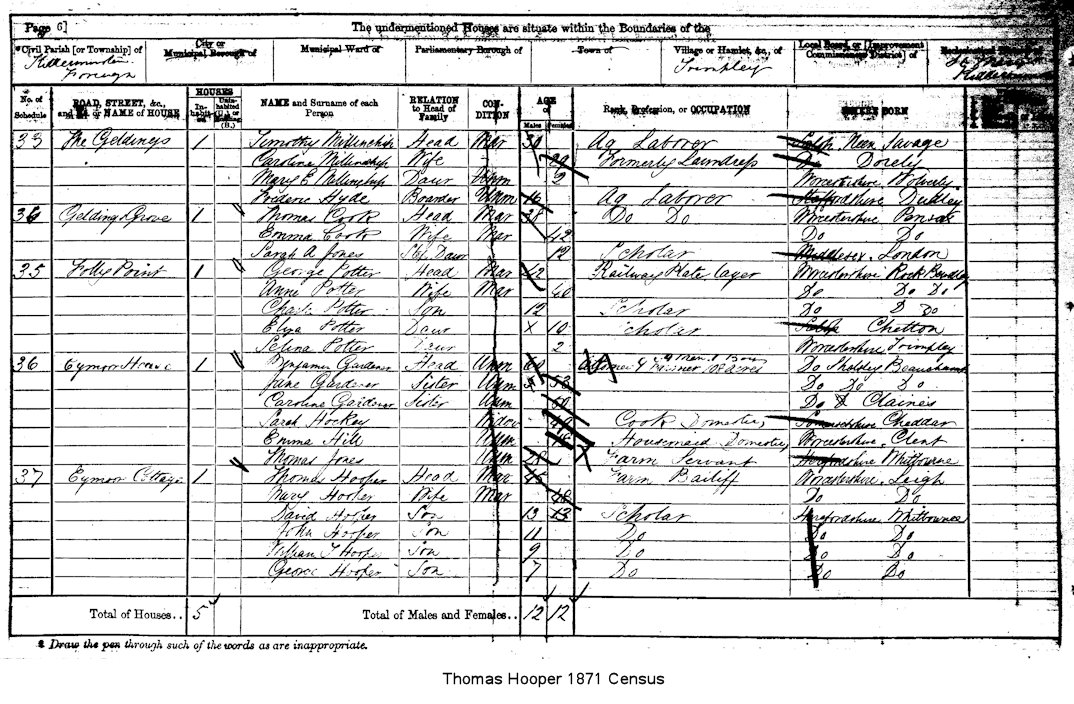 Page 6] The undermentioned Houses are situate within the Boundaries of the
* Civil Parish [or Township] of City or Municipal Borough of Municipal Ward of Parliamentary Borough of Town of Village or Hamlet, &c., of Local Board, or [Improvement Commissioners District] of Ecclesiastical District of
Kidderminster Foreign Trimpley Kidderminster
No. of Schedule ROAD, STREET, &c., and No. or NAME of HOUSE HOUSES In-habited Uninhabited (U.), or Building (B.) NAME and Surname of each Person RELATION to Head of Family CON-DITION AGE of Males Females Rank, Profession, or OCCUPATION WHERE BORN
33 The Geldings 1 Timothy Millinchip Head Mar 30 Ag Laborer Salop Neen Savage
Caroline Millinchip Wife 29 Formerly Laundress Do
Mary E Millinchip Daur 2 Worcestershire Wolverly
Frederic Hyde Boarder Unm 16 Ag Laborer Staffordshire Dudley
34 Geldings Grove 1 Thomas Cook Head Mar 28 Do Do Worcestershire Pensax
Emma Cook Wife Mar 42 Do Do
Sarah A Jones Daur 12 Scholar Middlesex, London
35 Folly Point 1 George Potter Head Mar 42 Railway Plate layer Worcestershire Rock
Anne Potter Wife Mar 40 Do Do Do
Charles Potter Son 12 Scholar Do D Do
Eliza Potter Daur X 10 Scholar Salop Chetton
Selina Potter Daur 2 Worcestershire Trimpley
36 Eymore House 1 Benjamin Gardener Head Unm Do Sholsley Beauchamp
Jane Gardener Sister Unm 58 Do Do Do
Caroline Gardener Sister Unm 50 Do Claines
Sarah Hockey Widow Cook Domestic, Somersetshire Cheddar
Emma Hill Unm Housemaid Domestic, Worcestershire, Clent
Thomas Jones Unm 28 Farm Servant Herefordshire Whitbourne
37 Eymore Cottage 1 Thomas Hooper Head Mar 45 Farm Bailiff Worcestershire, Leigh
Mary Hooper Wife Mar 48 Do Do
David Hooper Son 13 13 Scholar Herefordshire Whitbourne
John Hooper Son 11 Do Do Do
William T Hooper Son 9 Do Do Do
George Hooper Son 7 Do Do Do
Total of Houses.. 5 Total of Males and Females.. 12 12
* Draw the pen through such of the words as are inappropriate.
Thomas Hooper 1871 Census